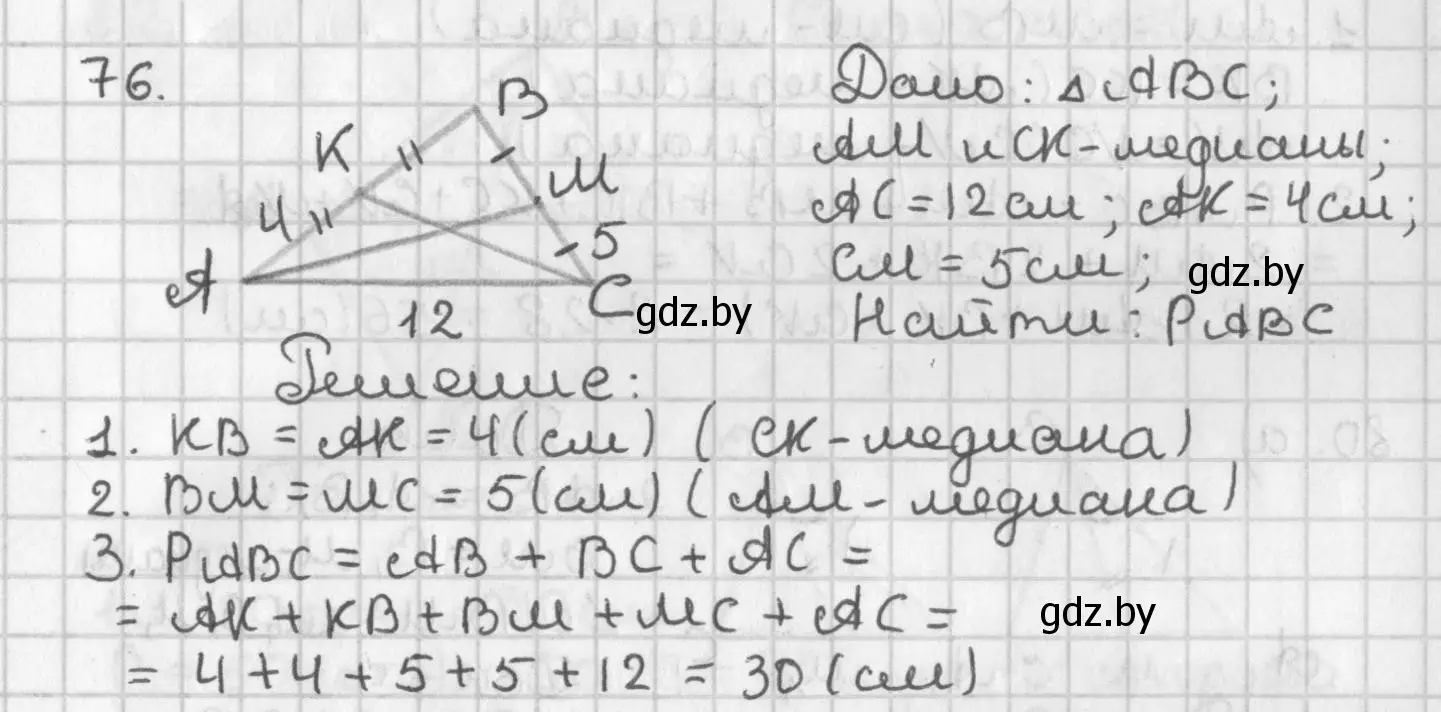 76.
B
K
M
4
5
A
C
12
Дано: △ABC;
AM и CK-медианы;
AC=12см; AK=4см;
CM=5см;
gdz.by
Найти: PABC
gdz.by
Решение:
1. KB = AK = 4(см) (CK-медиана)
2. BM = MC = 5(см) (AM-медиана)
3. PABC = AB + BC + AC =
= AK + KB + BM + MC + AC =
gdz.by
= 4 + 4 + 5 + 5 + 12 = 30 (см)